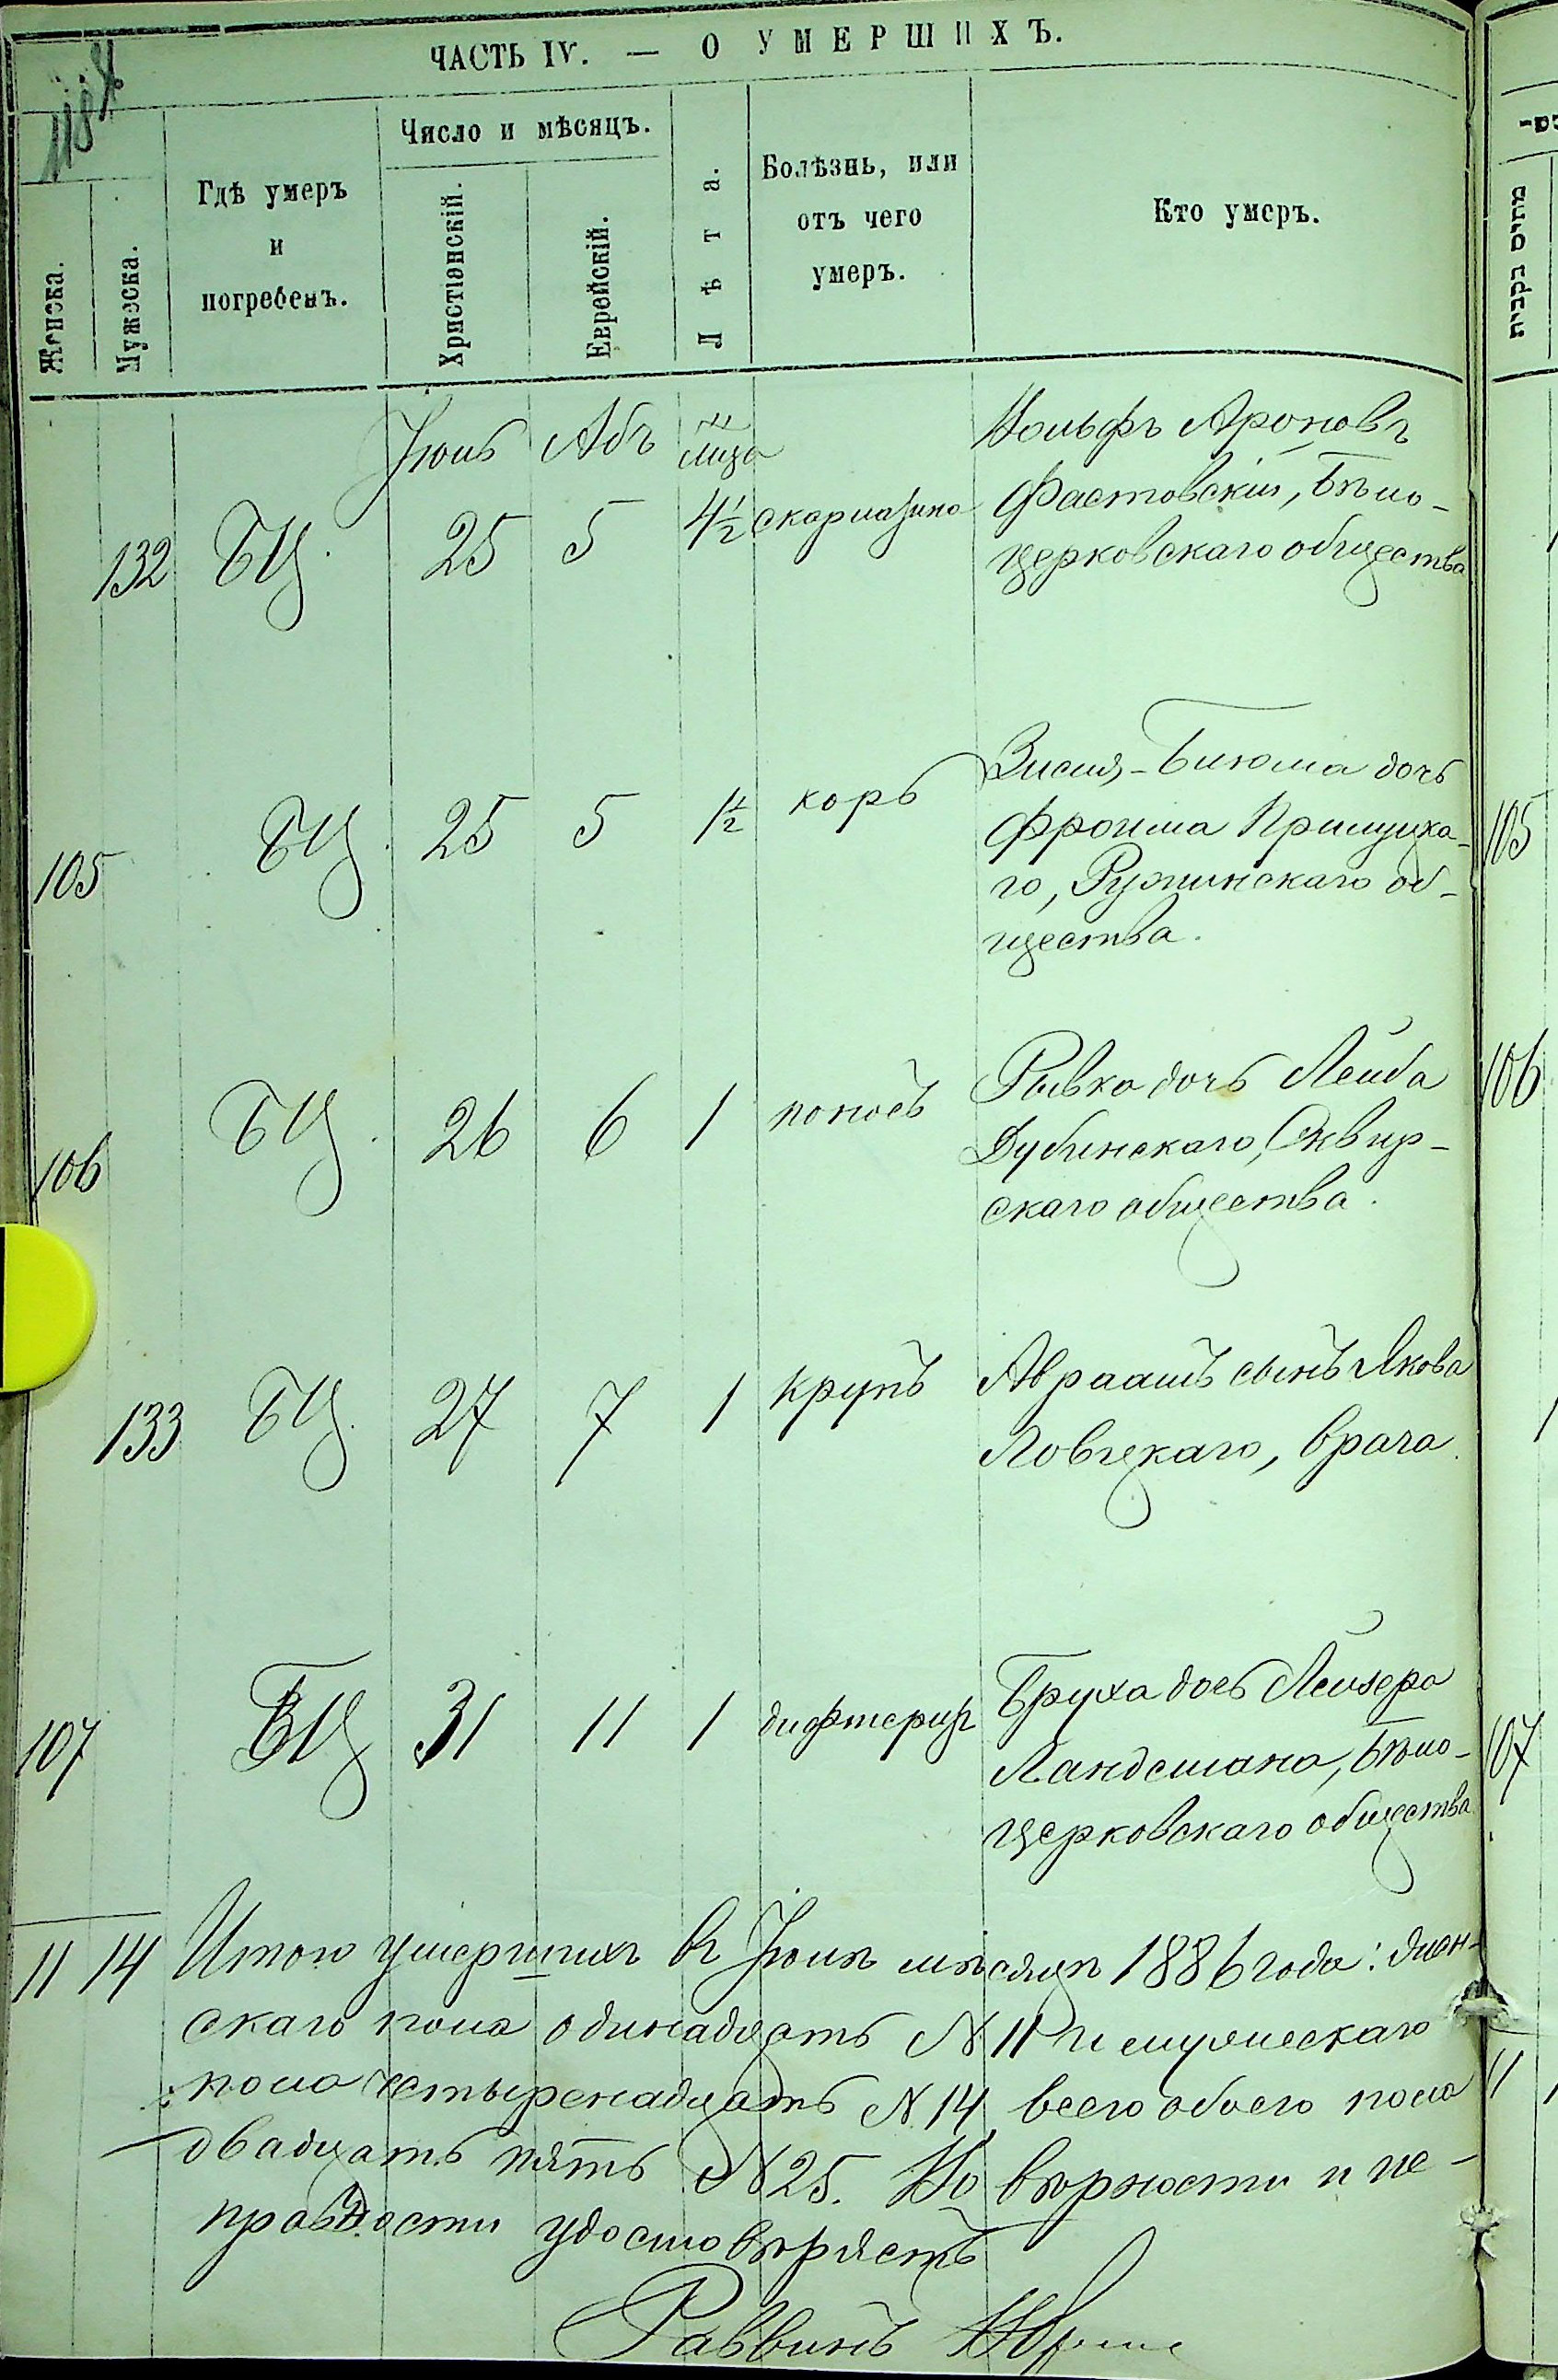 ЧАСТЬ IV. — О УМЕРШИХЪ.
118
Женска.
Мужеска.
Гдѣ умеръ
и
погребенъ.
Число и мѣсяцъ.
Христіанскій.
Еврейскій.
Лѣта.
Болѣзнь, или
отъ чего
умеръ.
Кто умеръ.
מתים נקבות
Іюль Абъ
132 БЦ. 25 5 4½ скарлатина
Вольфъ Ароновъ
Фастовскій, Бѣло-
церковскаго общества
105 БЦ. 25 5 1½ корь
Блюма дочь
Фроима
го, Ружинскаго об-
щества.
105
106 БЦ. 26 6 1 поносъ
Рывка дочь Лейба
Дубинскаго, Сквир-
скаго общества.
106
133 БЦ. 27 7 1 крупъ
Авраамъ сынъ Якова
Ловецкаго, врача.
107 БЦ 31 11 1 дифтеритъ
Бруха дочь Лейзера
Ландсмана, Бѣло-
церковскаго общества
107
11 14 Итого умершихъ въ Іюлѣ мѣсяцѣ 1886 года: жен-
скаго пола одинадцать № 11 и мужескаго
пола четыренадцать № 14, всего обоего пола
двадцать пять № 25. Въ вѣрности и не-
удостовѣряетъ
Раввинъ
11